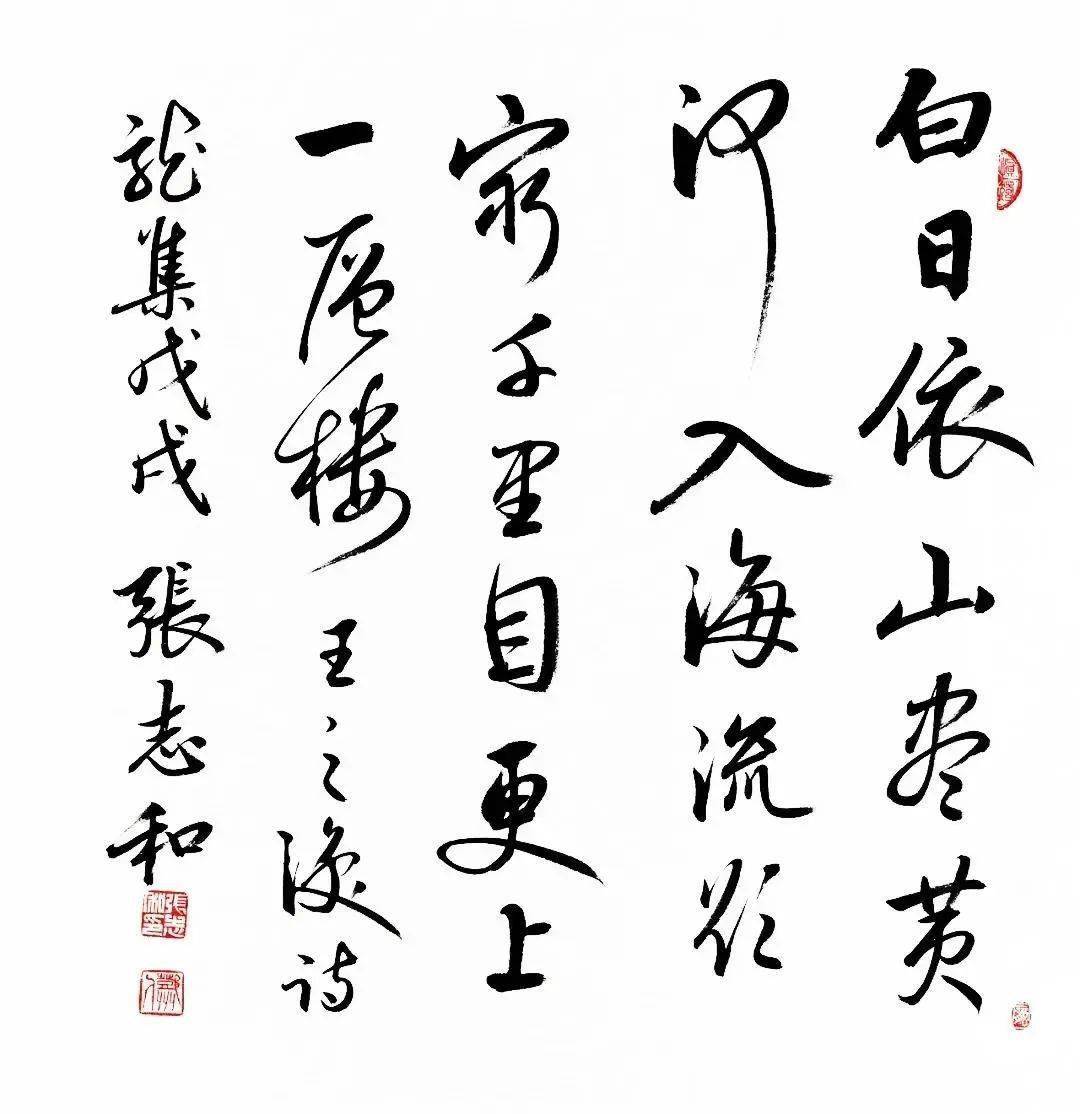 白日依山尽黄
河入海流欲
穷千里目更上
一层楼 王之涣诗
龍集戊戌 張志和